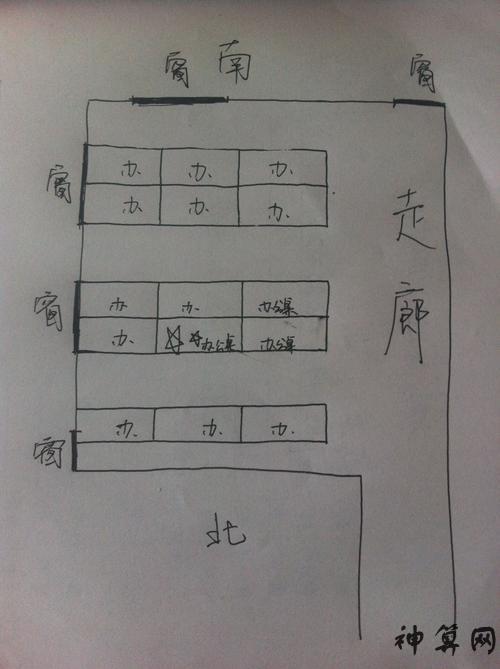 窗 南 窗
窗 办 办 办
办 办 办
走廊
窗 办 办 办公桌
办 办公桌 办公桌
办 办 办
窗
北
神算网